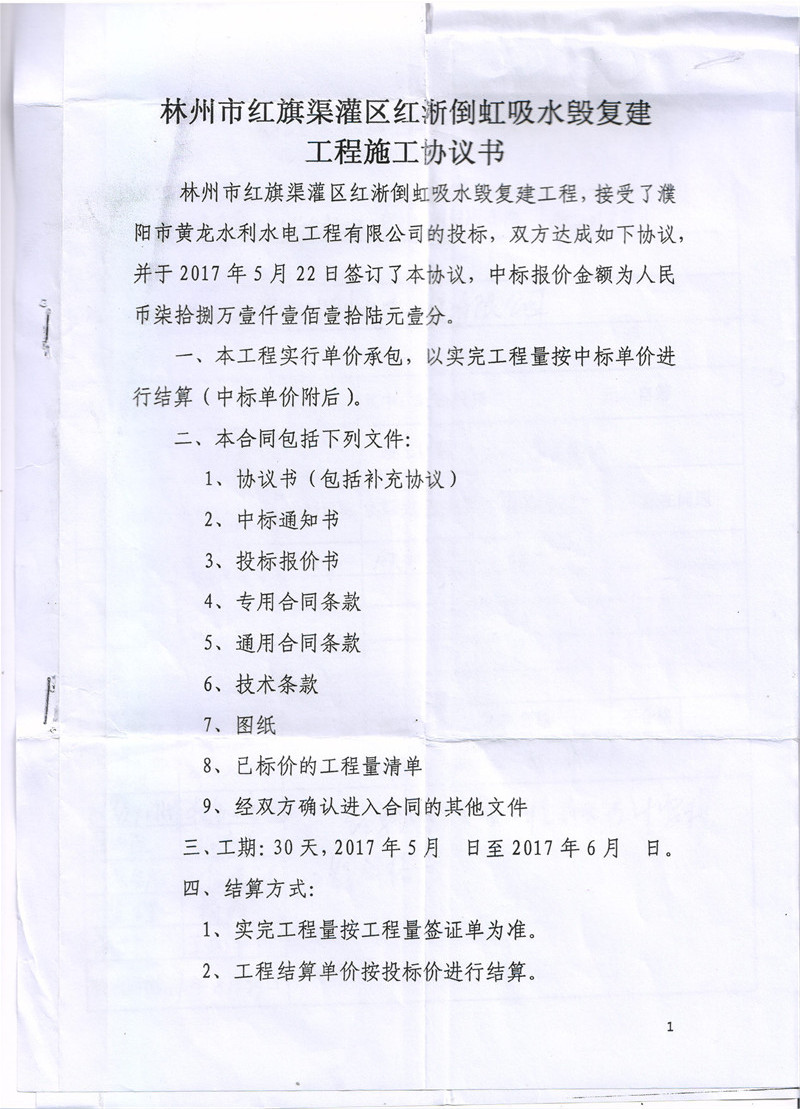 林州市红旗渠灌区红淅倒虹吸水毁复建
工程施工协议书
林州市红旗渠灌区红淅倒虹吸水毁复建工程，接受了濮
阳市黄龙水利水电工程有限公司的投标，双方达成如下协议，
并于2017年5月22日签订了本协议，中标报价金额为人民
币柒拾捌万壹仟壹佰壹拾陆元壹分。
一、本工程实行单价承包，以实完工程量按中标单价进
行结算（中标单价附后）。
二、本合同包括下列文件：
1、协议书（包括补充协议）
2、中标通知书
3、投标报价书
4、专用合同条款
5、通用合同条款
6、技术条款
7、图纸
8、已标价的工程量清单
9、经双方确认进入合同的其他文件
三、工期：30天，2017年5月　日至2017年6月　日。
四、结算方式：
1、实完工程量按工程量签证单为准。
2、工程结算单价按投标价进行结算。
1